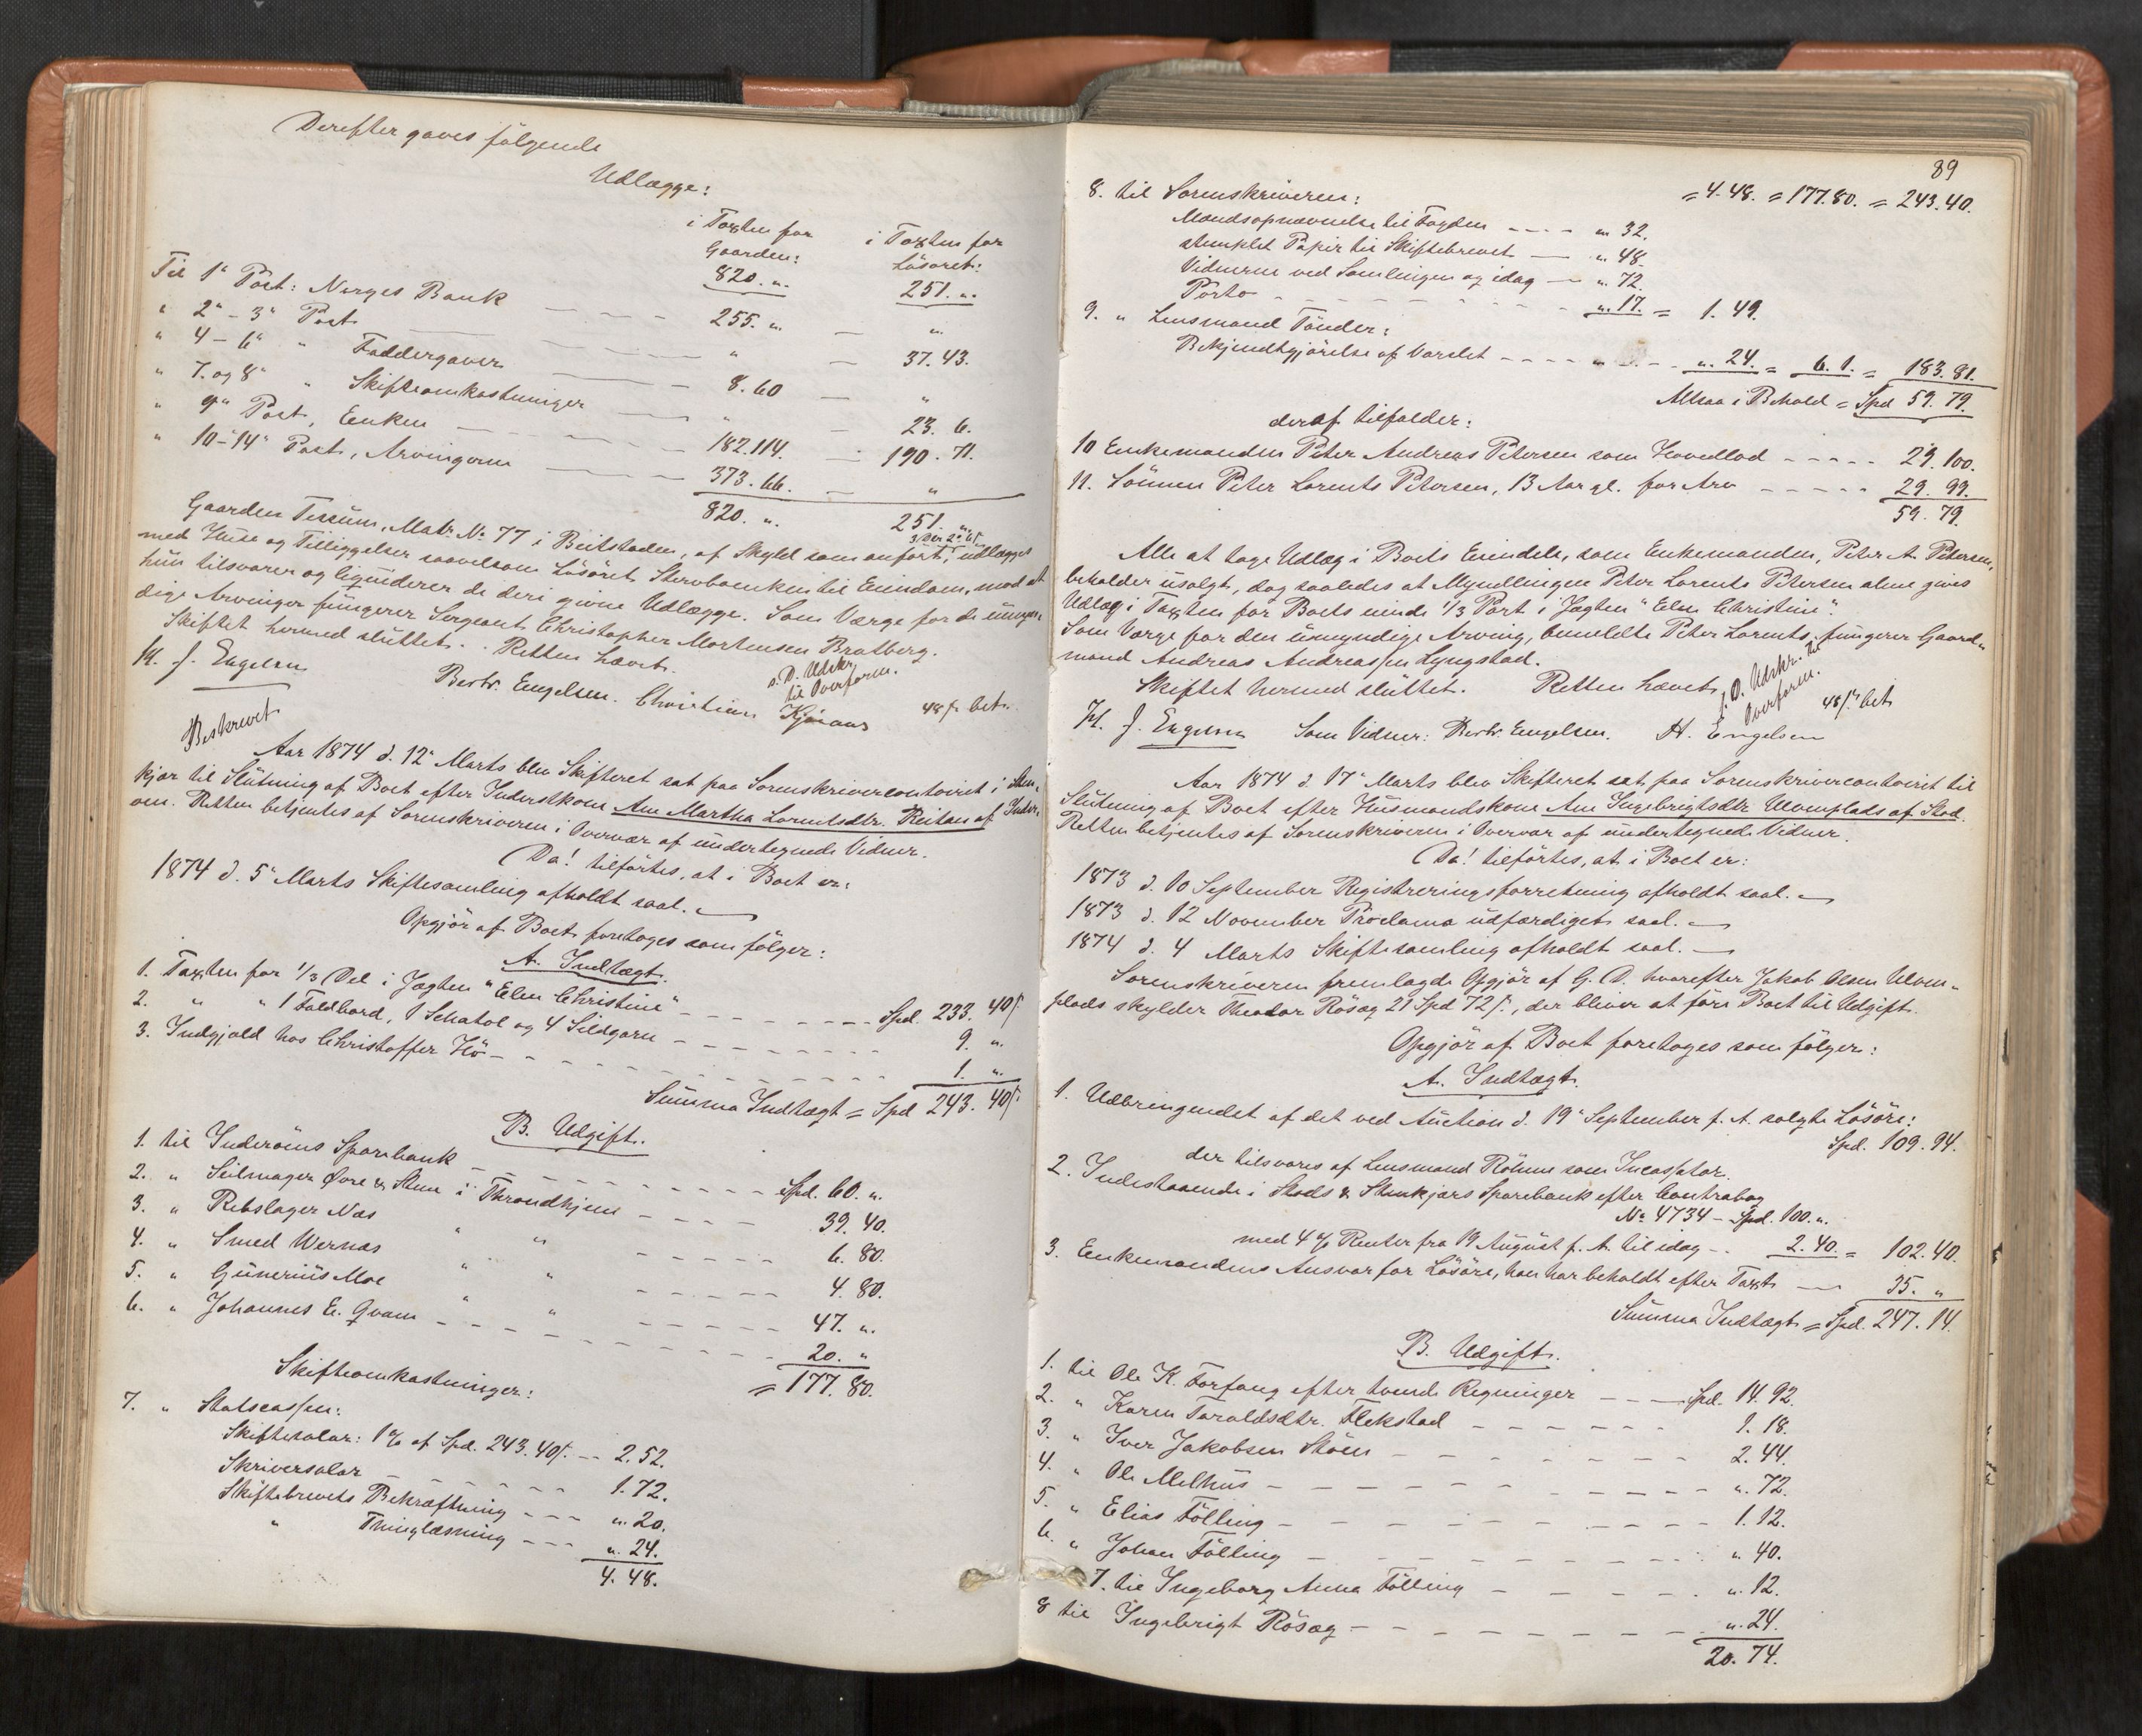 Derefter gaves følgende
Udlægge:
i Taxten for i Taxten for
Gaarden: Løsøret:
820. " 251. "
Til 1ste Post: Norges Bank — — — 255. " — "
" 2den - 3die Post — — — " — 37. 43.
" 4 - 6te " Faddergaver — — — 8. 60 — "
" 7. og 8de " Skifteomkostninger — — " — 23. 6.
" 9de Post, Enken — — — 182. 114. — 190. 71.
" 10 - 14de Post, Arvingerne — — — 373. 66. — "
820. " 251. "
Gaarden Tessum, Matr. No 77 i Beitstaden, af Skyld som anført, udlægges
med Huse og Tilliggelser saavelsom Løsøret Stervboenken til Eiendom, mod at
hun tilsvarer og liquiderer de deri givne Udlægge. Som Værge for de umyn-
dige Arvinger fungerer Sergeant Christopher Mortensen Bratberg.
Skiftet hermed sluttet. Retten hævet.
H. J. Engelsen Bertr. Engelsen. Christian Kjøraas
s. D. Udskr.
til Overform.
48 s. bet.
Beskrevet
Aar 1874 d. 12te Marts blev Skifteret sat paa Sorenskrivercontoiret i Sten-
kjær til Slutning af Boet efter Inderstkone Ane Martha Lorentsdtr. Reitan af Inder-
øen. Retten betjentes af Sorenskriveren i Overvær af undertegnede Vidner.
Da! tilførtes, at i Boet er:
1874 d. 5te Marts Skiftesamling afholdt saal. —
Opgjør af Boet foretages som følger:
A. Indtægt.
1. Taxten for 1/3 Del i Jagten "Elen Christine" — — — Spd. 233. 40 s.
2. " " 1 Foldbord, 1 Schatol og 4 Sildgarn — — — 9. "
3. Indgjæld hos Christoffer Hø — — — 1. "
Summa Indtægt = Spd 243. 40 s.
B. Udgift.
1. til Inderøens Sparebank — — — Spd. 60. "
2. " Seilmager Øvre & Steen i Throndhjem — — — 39. 40.
3. " Rebslager Næs " " — — — 6. 80.
4. " Smed Wernæs " " — — — 4. 80.
5. " Gunerius Moe " " — — — 47. "
6. " Johannes E. Qvam — — — 20. "
= 177. 80.
Skifteomkostninger:
7. " Statscassen:
Skiftesalær: 1 % af Spd. 243. 40 s. — 2. 52.
Skriversalær — — — 1. 72.
Skiftebrevets Bekræftning — — — ". 20.
" Thinglæsning — — — ". 24.
4. 48.
89
= 4. 48. = 177. 80. = 243. 40.
8. til Sorenskriveren:
Mandsopnævnelse til Fogden — — — ". 32.
stemplet Papir til Skiftebrevet — ". 48.
Vidnerne ved Samlingen og idag — ". 72.
Porto — — — ". 17. = 1. 49.
9. " Lensmand Tønder:
Bekjendtgjørelse af Varslet — — — ". 24. = 6. 1. = 183. 81.
Altsaa i Behold = Spd 59. 79.
deraf tilfalder:
10 Enkemanden Peter Andreas Petersen som Hovedlod — — — 29. 100.
11. Sønnen Peter Lorents Petersen, 13 Aar gl. for Arv — — — 29. 99.
59. 79.
Alle at tage Udlæg i Boets Eiendele, som Enkemanden, Peter A. Petersen,
beholder usolgt, dog saaledes at Myndlingen Peter Lorents Petersen alene gives
Udlæg i Taxten for Boets eiende 1/3 Part i Jagten "Elen Christine".
Som Værge for den umyndige Arving, bemeldte Peter Lorents, fungerer Gaard-
mand Andreas Andreassen Lyngstad.
Skiftet hermed sluttet. Retten hævet.
s. D. Udskr. til
Overform.
48 s. bet
H. J. Engelsen Som Vidner: Bertr. Engelsen. H. Engelsen
Aar 1874 d. 17de Marts blev Skifteret sat paa Sorenskrivercontoiret til
Slutning af Boet efter Husmandskone Ane Ingebrigtsdtr. Ulvenplads af Stod.
Retten betjentes af Sorenskriveren i Overvær af undertegnede Vidner.
Da! tilførtes, at i Boet er:
1873 d. 10 September Registreringsforretning afholdt saal. —
1873 d. 12 November Proclama udfærdiget saal. —
1874 d. 4 Marts Skiftesamling afholdt saal. —
Sorenskriveren fremlagde Opgjør af G. D. hvorefter Jakob Olsen Ulven-
plads skylder Theodor Røsæg 21 Spd 72 s., der bliver at føre Boet til Udgift.
Opgjør af Boet foretages som følger:
A. Indtægt.
1. Udbringendet af det ved Auction d. 19de September f. A. solgte Løsøre:
Spd. 109. 94.
der tilsvares af Lensmand Røhme som Incassator.
2. Indestaaende i Stods & Stenkjærs Sparebank efter Contrabog
No 4734 — Spd. 100. "
med 4 % Renter fra 19 August f. A. til idag — 2. 40. = 102. 40.
3. Enkemandens Ansvar for Løsøre, han har beholdt efter Taxt — 35. "
Summa Indtægt = Spd. 247. 14.
B. Udgift.
1. til Ole K. Forfang efter tvende Regninger — — — Spd. 14. 92.
2. " Karen Taraldsdtr. Flekstad — — — 1. 18.
3. " Iver Jakobsen Støen — — — 2. 44.
4. " Ole Melhus — — — ". 72.
5. " Elias Følling — — — 1. 12.
6. " Johan Følling — — — ". 40.
7. til Ingeborg Anna Følling — — — ". 12.
8 til Ingebrigt Røsæg — — — ". 24.
20. 74.